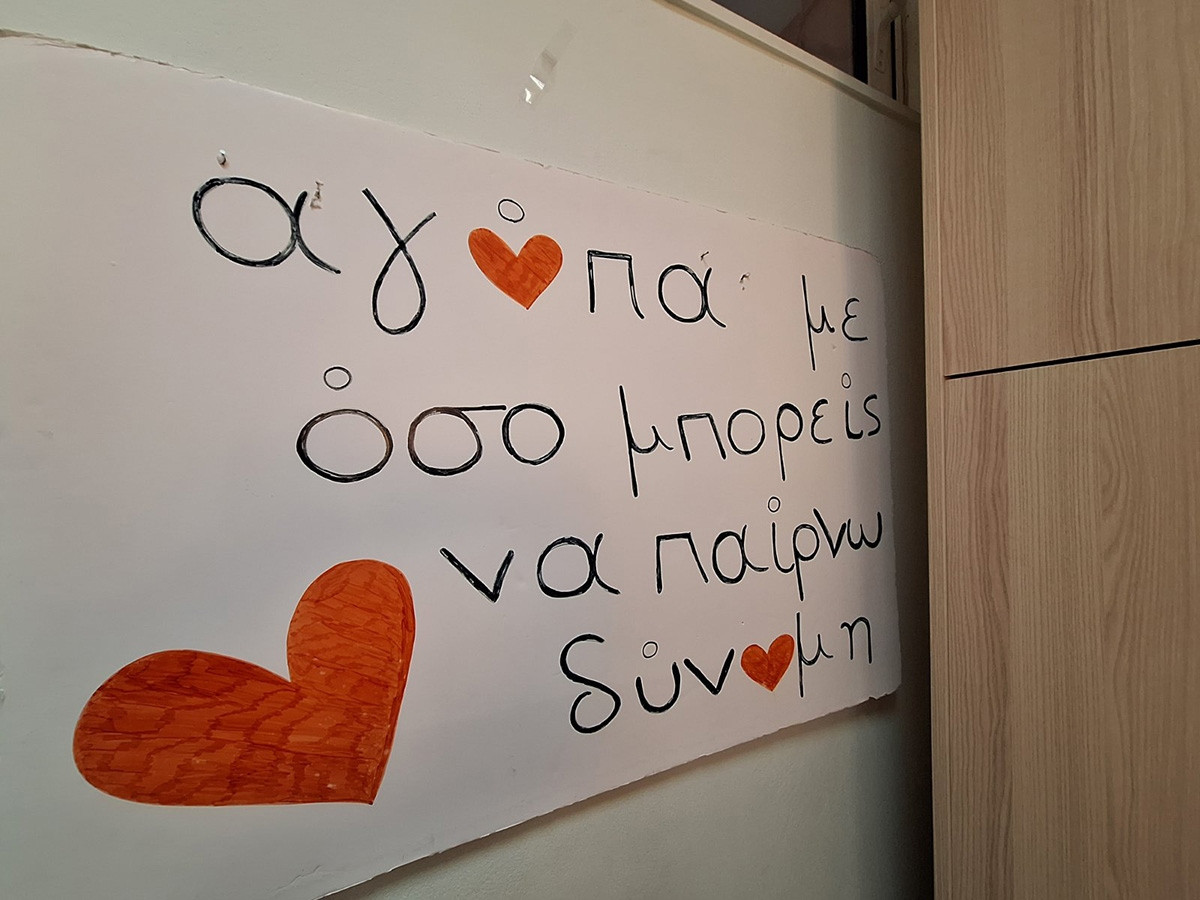 αγ❤πα με
όσο μπορείς
να παίρνω
δύν❤μη